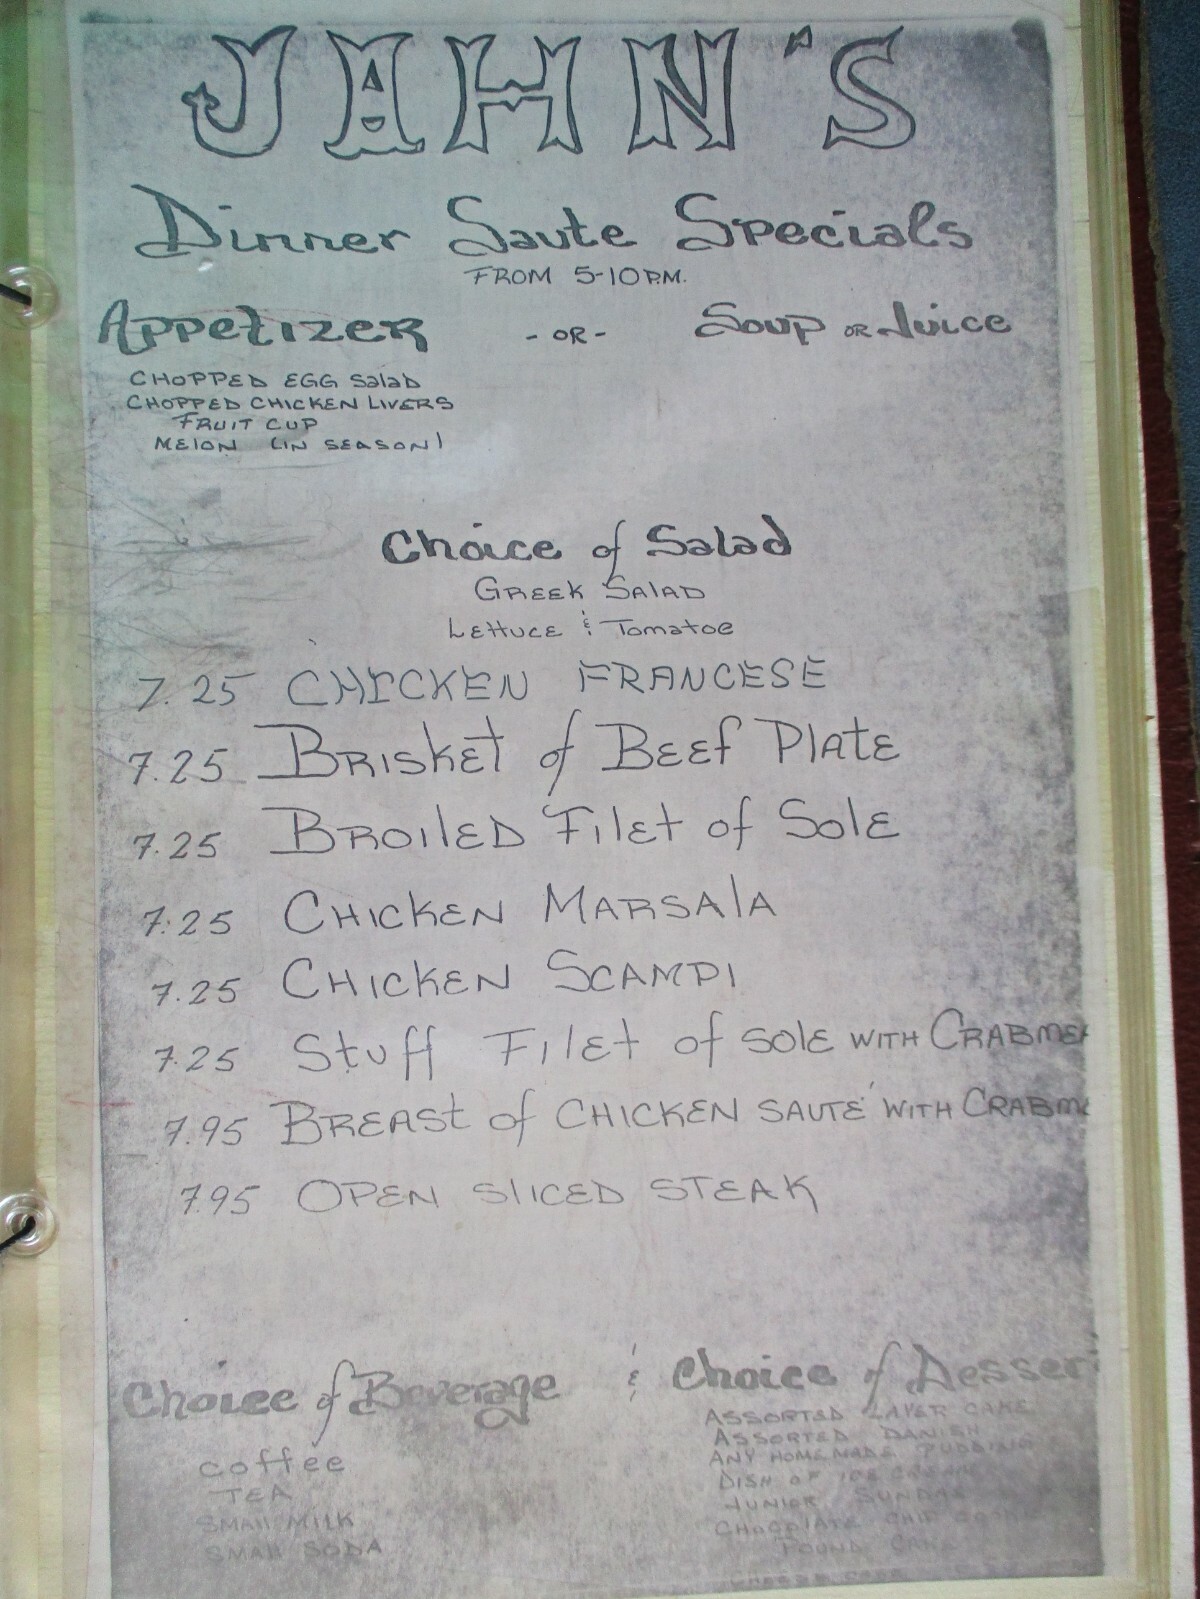 JAHN'S
Dinner Saute Specials
FROM 5-10 P.M.
Appetizer - OR - Soup OR Juice
CHOPPED EGG Salad
CHOPPED CHICKEN LIVERS
FRUIT CUP
MELON (IN SEASON)
Choice of Salad
GREEK SALAD
LETTUCE & Tomatoe
7.25 CHICKEN FRANCESE
7.25 BRISKET of BEEF PLATE
7.25 BROILED FILET of SOLE
7.25 CHICKEN MARSALA
7.25 CHICKEN SCAMPI
7.25 Stuff FILET of SOLE WITH CRABMEA
7.95 BREAST of CHICKEN SAUTÉ WITH CRABME
7.95 OPEN SLICED STEAK
Choice of Beverage & Choice of Desser
coffee
TEA
SMALL MILK
SMALL SODA
ASSORTED LAYER CAKE
ASSORTED DANISH
ANY HOMEMADE PUDDING
DISH OF ICE CREAM
JUNIOR SUNDAE
CHOCOLATE CHIP
POUND CAKE